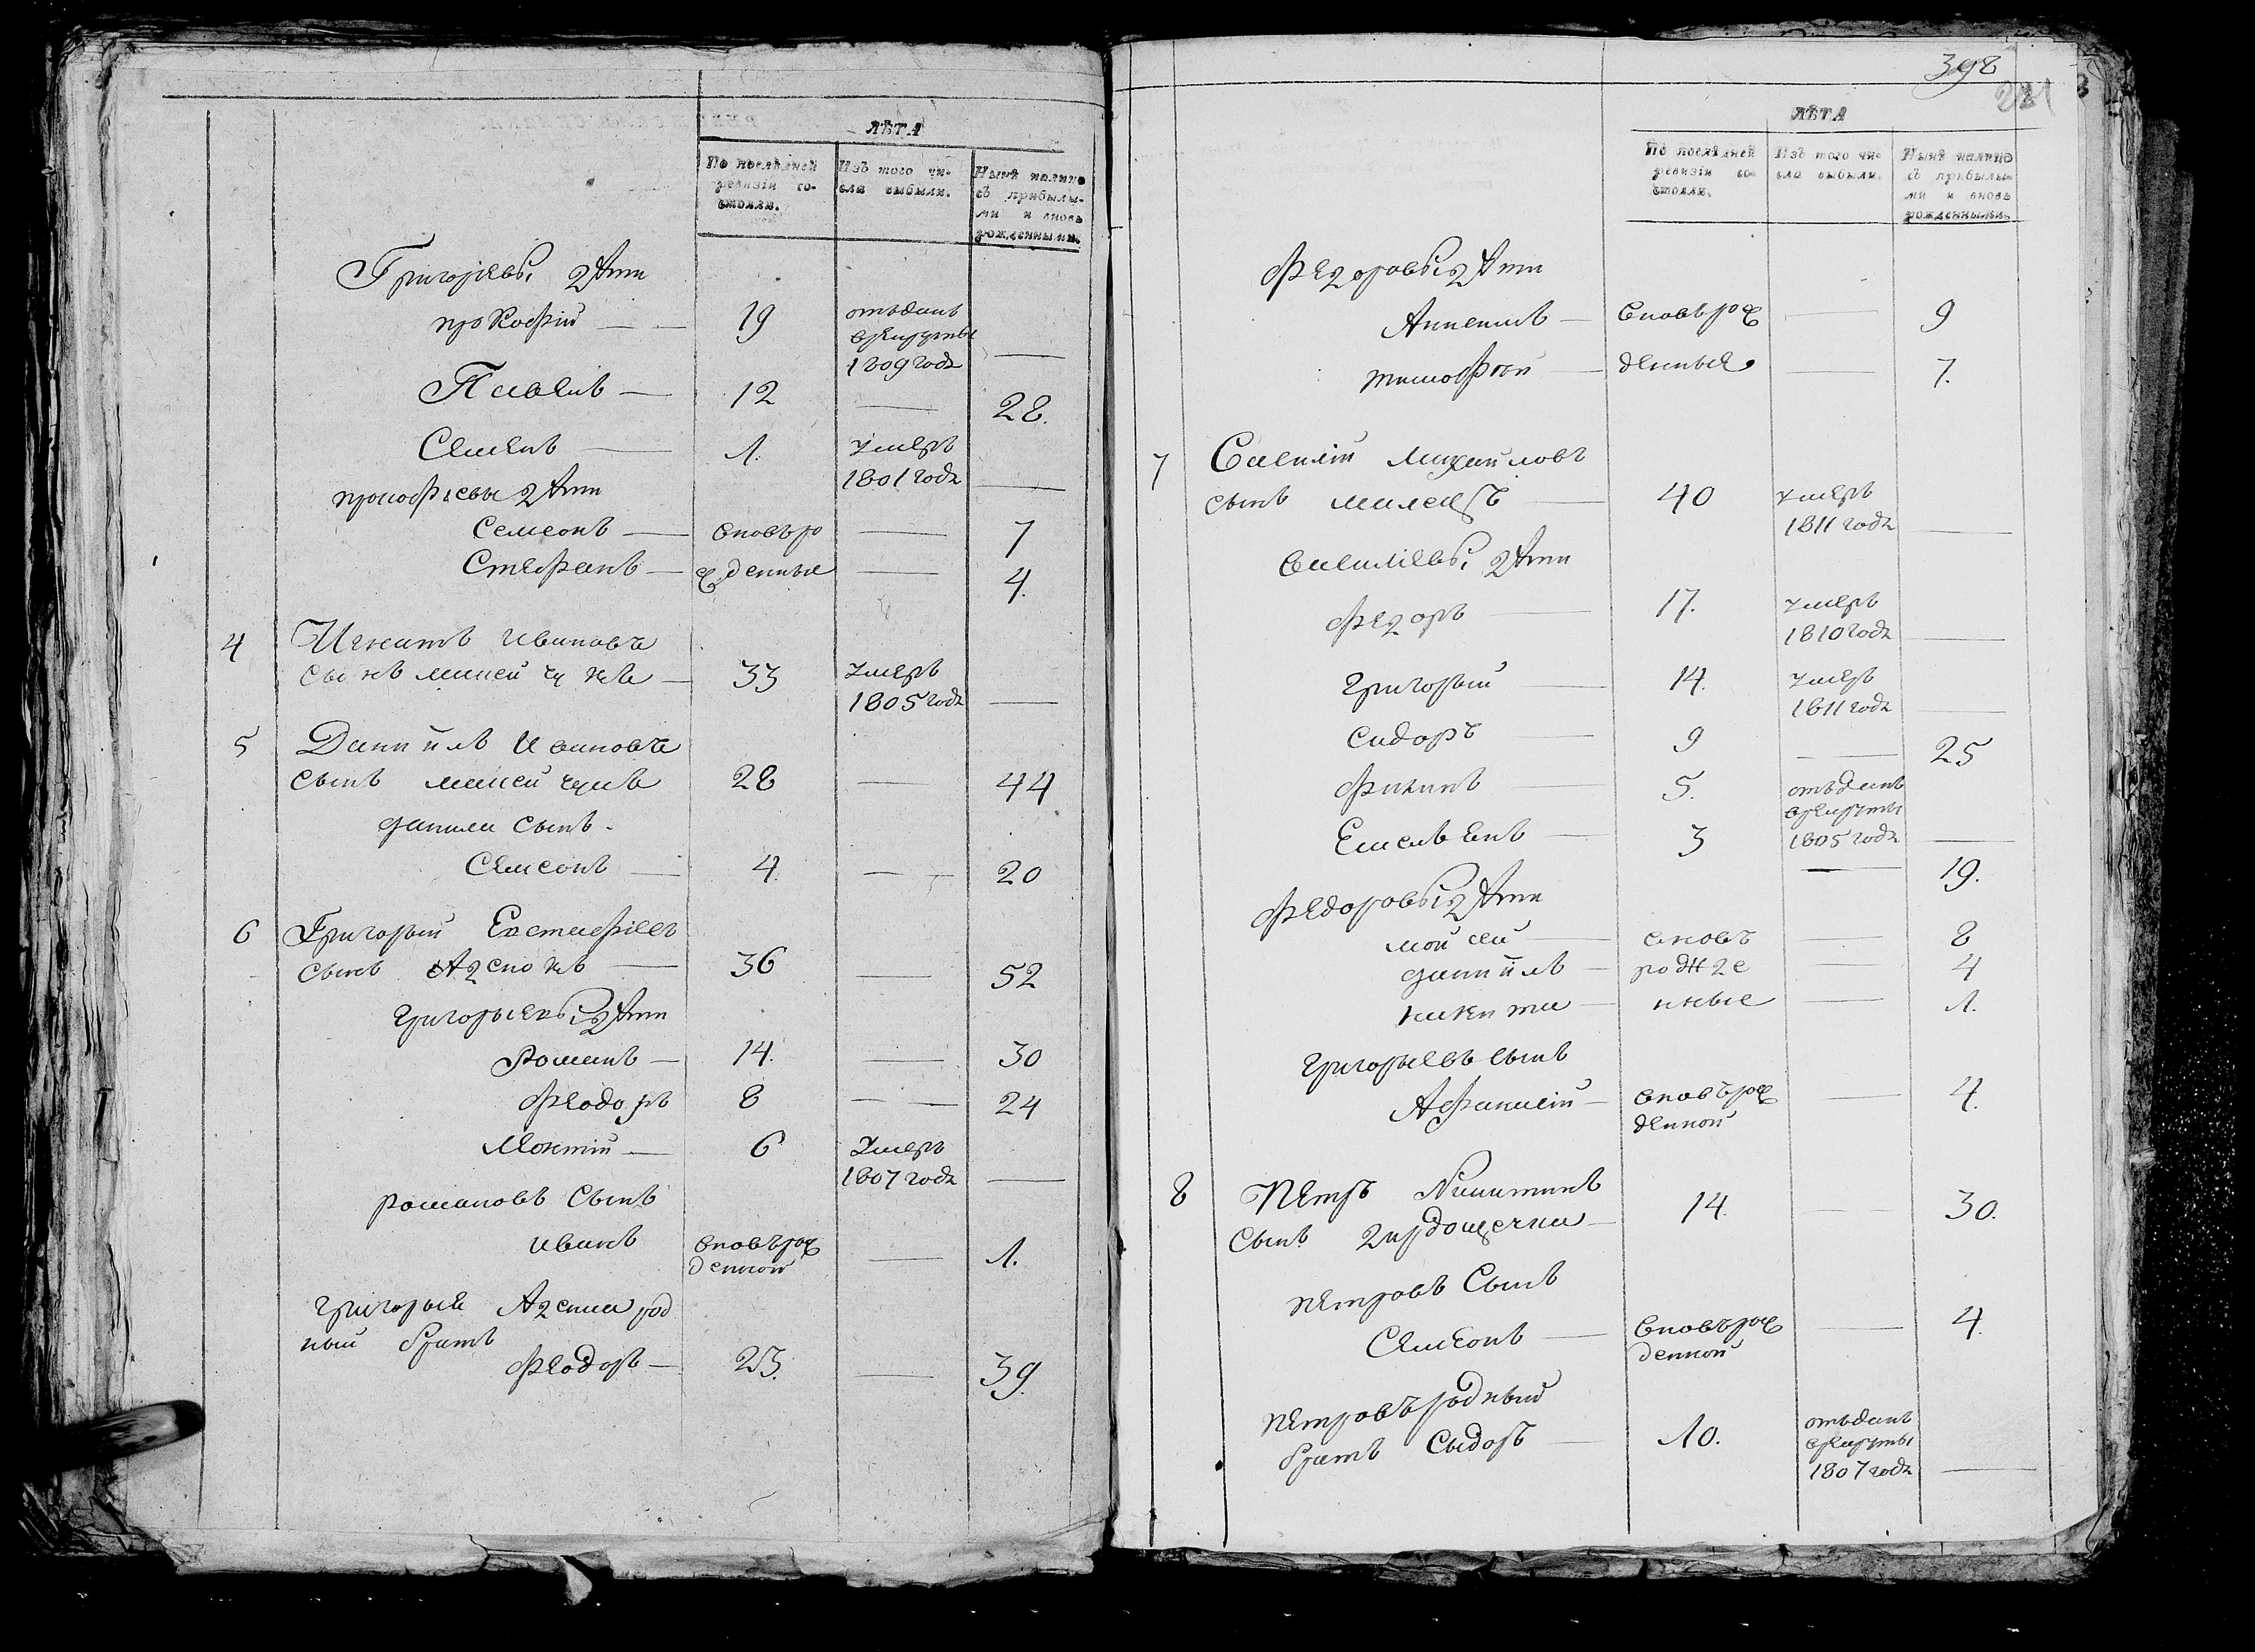 ЛѢТА
По послѣдней ревизіи состояли.
Изъ того числа выбыли.
Нынѣ налицо съ прибылыми и вновь рожденными.
Григорьевы дѣти
прокофій — 19 отъданъ
врекруты
1809 года —
Павелъ — 12 — 28.
Семенъ — 1. умеръ
1801 года —
прокофіевы дѣти
Семионъ — вновъро — 7
Стефанъ — жденные — 4.
4 Игнатъ Ивановъ
сынъ 33 умеръ
1805 года —
5 Данійлъ Ивановъ
сынъ 28 — 44
данила сынъ
Семионъ — 4 — 20
6 Григорій Евстафіевъ
сынъ 36 — 52
григорьевы дѣти
Романъ — 14. — 30
Феодоръ 8 — 24
Моктій — 6 умеръ
1807 года —
романовъ сынъ
иванъ вновърож — 1.
денной
григорья род
ный братъ
Феодоръ — 23. — 39.
398
221
ЛѢТА
По послѣдней ревизіи состояли.
Изъ того числа выбыли.
Нынѣ налицо съ прибылыми и вновь рожденными.
Федоровы дѣти
— вновьрож — 9
тимофей — денные — 7.
7 Василій Михайловъ
сынъ — 40 умеръ
1811 года —
василіевы дѣти
Федоръ — 17. умеръ
1810 года —
григорій — 14. умеръ
1811 года —
сидоръ — 9 — 25
Филипъ — 5. отъданъ
врекруты
1805 года —
3 — 19.
Федоровы дѣти
мойсей — вновъ — 8
данійлъ — рожде — 4
никита — нные — 1.
григорьевъ сынъ
Афанасій — вновърож — 4.
денной
8 Петръ Никитинъ
сынъ 14. — 30.
петровъ сынъ
Семионъ — вновърож — 4.
денной
петровъ родный
братъ Сыдоръ — 10. отъданъ
врекруты
1807 года —